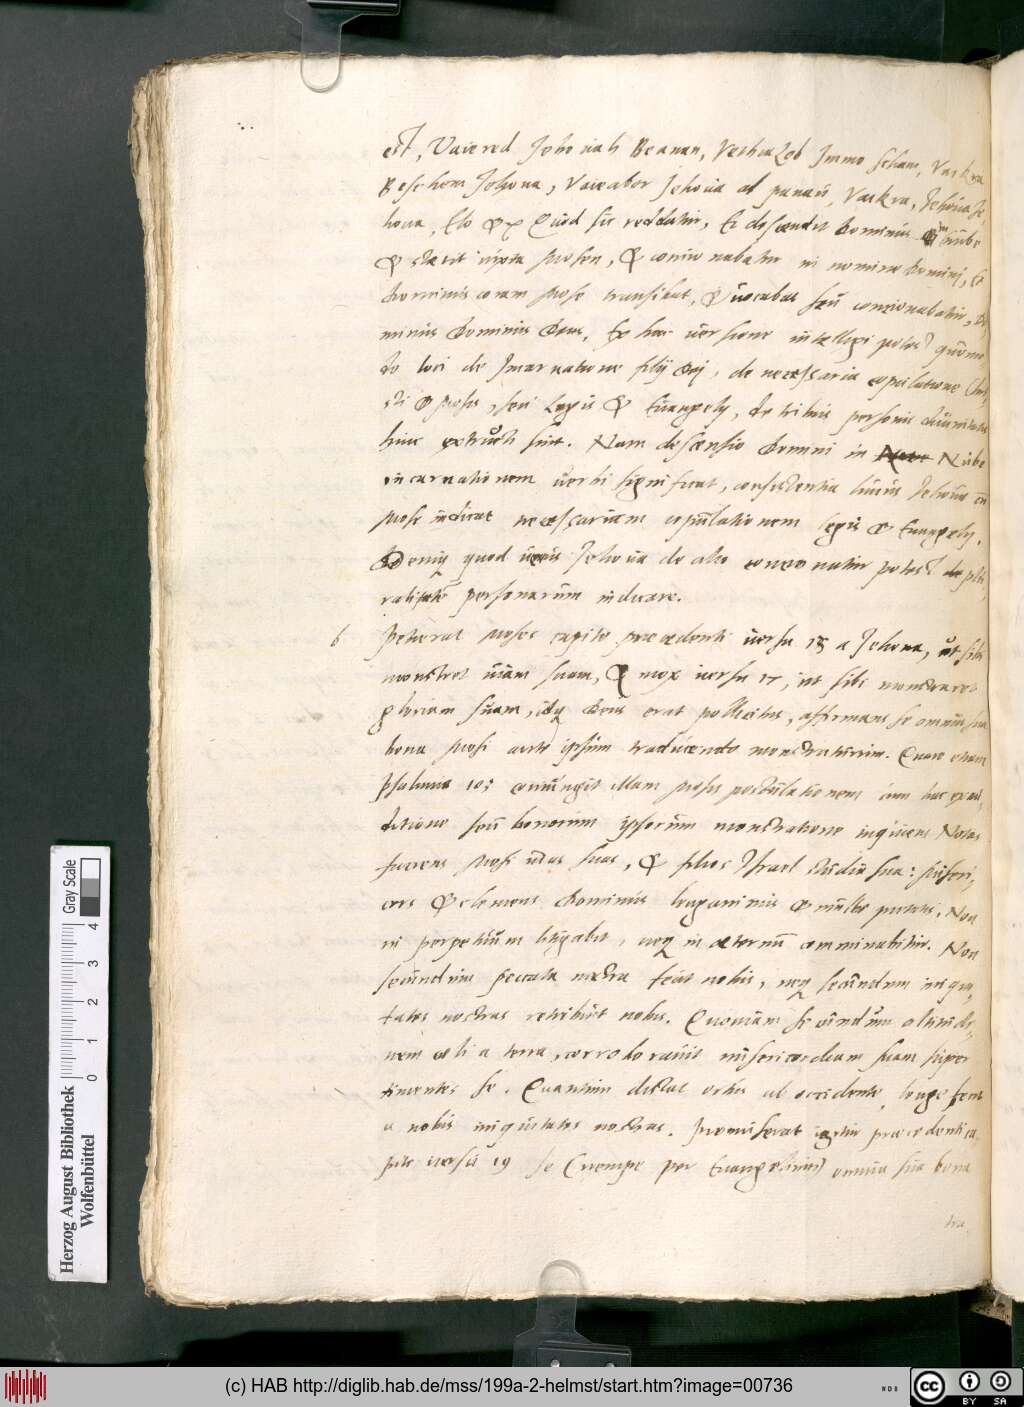 est, Vaiered Jehouah Beanan, Vethiazeb Immo scham, Vaikra
Beschem Jehoua, Vaieabor Jehoua al panaū, Vaikra, Jehoua Je,
houa, El &c Quod sic redditur, Et descendit Dominus in nube
& stetit iuxta Mosen, & concionabatur in nomine Domini, Et
Dominus coram Mose transibat, & vocabat seu concionabatur, Do
minus Dominus Deus, Ex hac versione intellegi potest quomo
do loci de Incarnatione filij Dei, de necessaria copulatione Chri,
sti & Mosis, seu Legis & Euangelij, de tribus personis diuinitatis
hinc extructi sint. Nam descensio Domini in Nube
incarnationem verbi significat, consistentia huius Jehouæ cū
Mose indicat necessariam copulationem legis & Euangelij.
Deniq quod unus Jehoua de alio concionatur potest plu,
ralitatē personarum indicare.
6 Petierat Moses capite præcedenti versu 13 a Jehoua, ut sibi
monstret viam suam, & mox versu 17, ut sibi monstraret
gloriam suam, idq Deus erat pollicitus, affirmans se omnia sua
bona Mosi ante ipsum traducendo monstraturum. Quare etiam
Psalmus 103 coniungit illam Mosis postulationem cum hac exau,
ditione seu bonorum ipsorum monstratione inquiens Notas
faciens Mosi vias suas, & filijs Israel studia sua: Miseri,
cors & clemens Dominus longanimis & multæ pietatis. Non
in perpetuum litigabit, neq in æternū comminabitur. Non
secundum peccata nostra fecit nobis, neq secundum iniqui,
tates nostras retribuit nobis. Quoniam secundum altitudi,
nem cæli a terra, corroborauit misericordiam suam super
timentes se. Quantum distat ortus ab occidente, longe fecit
a nobis iniquitates nostras. Promiserat igitur præcedenti ca,
pite versu 19 se (nempe per Euangelium) omnia sua bona
tra
Gray Scale
0 1 2 3 4
Herzog August Bibliothek
Wolfenbüttel
(c) HAB http://diglib.hab.de/mss/199a-2-helmst/start.htm?image=00736
cc BY SA